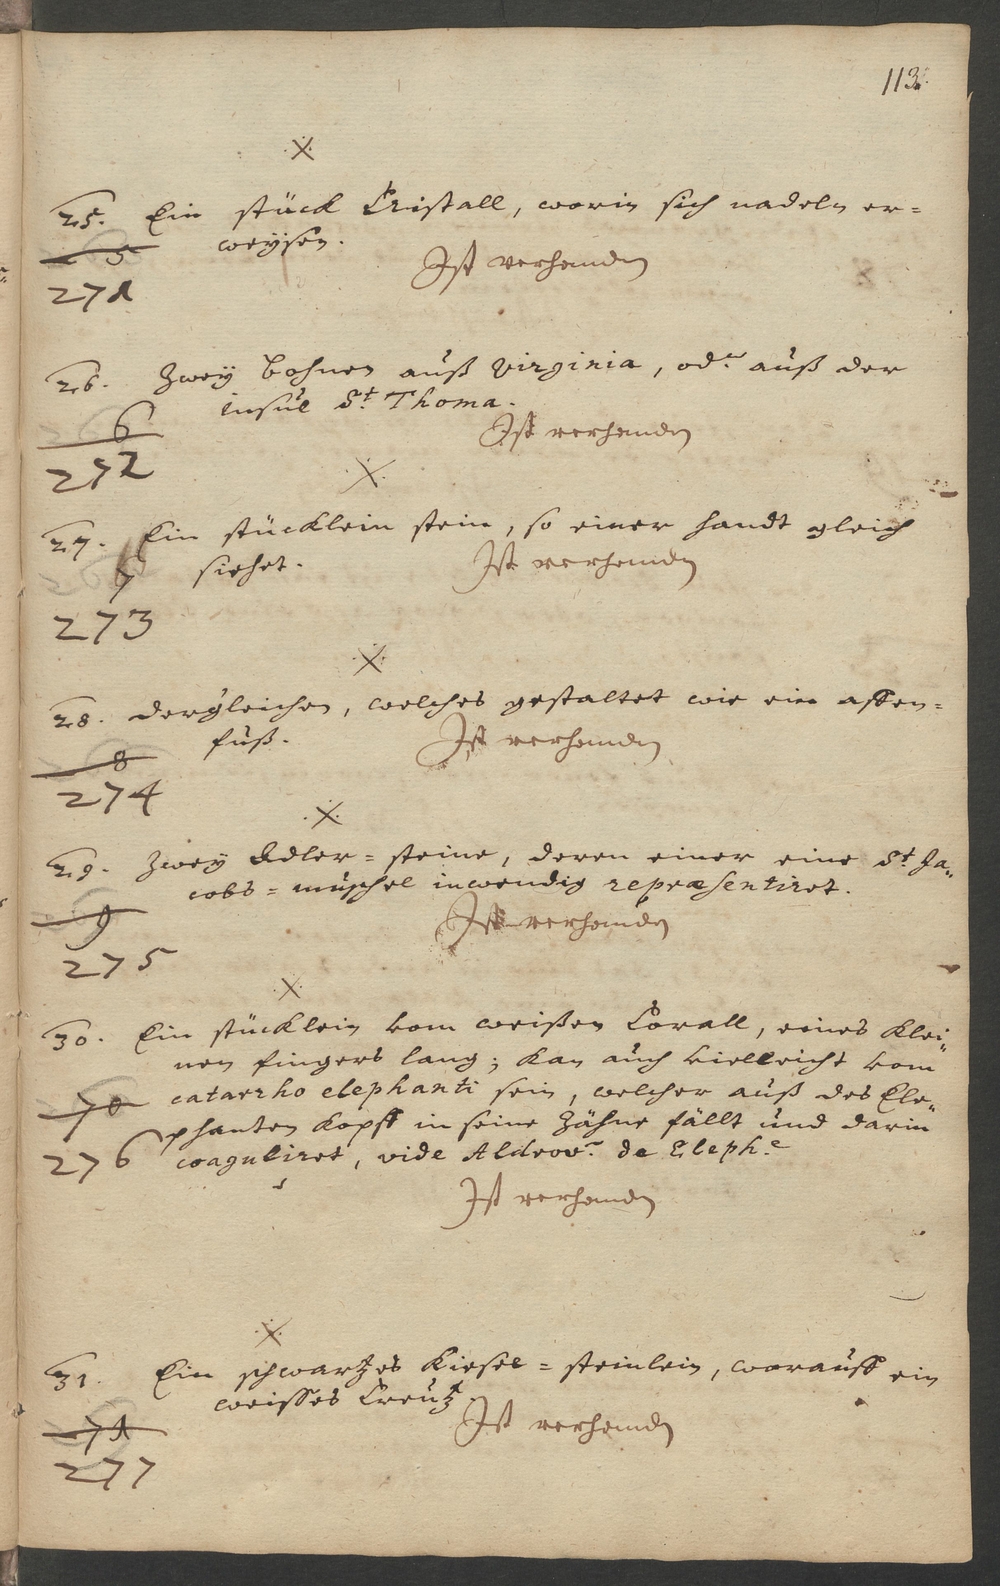 113.
25. Ein stück Cristall, worin sich nadeln er=
weÿsen.
Ist verhanden
271
26. Zweÿ bohnen auß Virginia, od. auß der
insul St. Thoma.
6
Ist verhanden
272
27. Ein stücklein stein, so einer handt gleich
siehet.
Ist verhanden
7
273
28. dergleichen, welches gestaltet wie ein affen=
fuß.
Ist verhanden
8
274
29. Zweÿ Adler=steine, deren einer eine St. Ja„
cobs=muschel inwendig repræsentiret.
9
Ist verhanden
275
30. Ein stücklein vom weißen Corall, eines klei„
nen fingers lang; kan auch vielleicht vom
catarrho elephanti sein, welcher auß des Ele„
phanten kopff in seine Zähne fällt und darin
276 coaguliret, vide Aldrov. de Eleph.
Ist verhanden
31. Ein schwartzes Kiesel=steinlein, worauff ein
weisses Creutz.
Ist verhanden
277